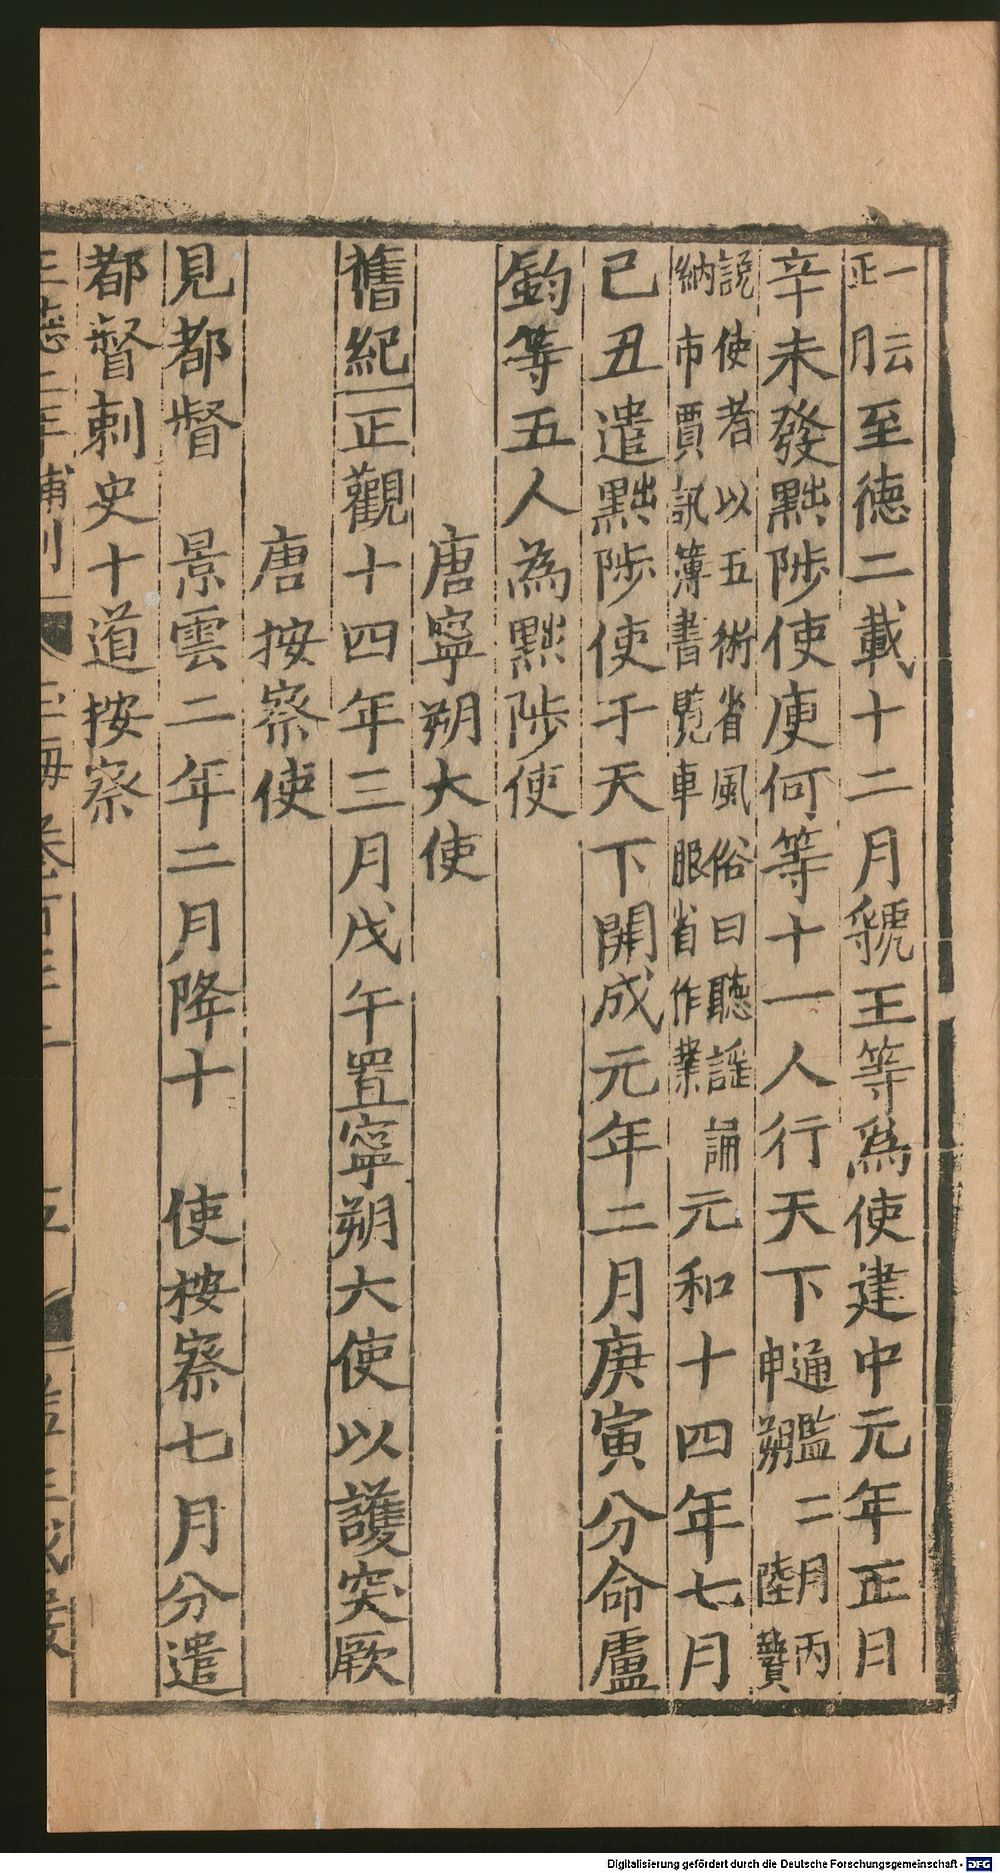 一云正月至德二載十二月虢王等爲使建中元年正月
辛未發黜陟使庾何等十一人行天下通鑑二月丙申朔陸贄
說使者以五術省風俗曰聽謡誦納市賈訊簿書覧車服省作業元和十四年七月
己丑遣黜陟使于天下開成元年二月庚寅分命盧
鈞等五人為黜陟使
唐寧朔大使
舊紀正觀十四年三月戊午置寧朔大使以護突厥
唐按察使
見都督 景雲二年二月降十 使按察七月分遣
都督刺史十道按察
Digitalisierung gefördert durch die Deutsche Forschungsgemeinschaft - DFG